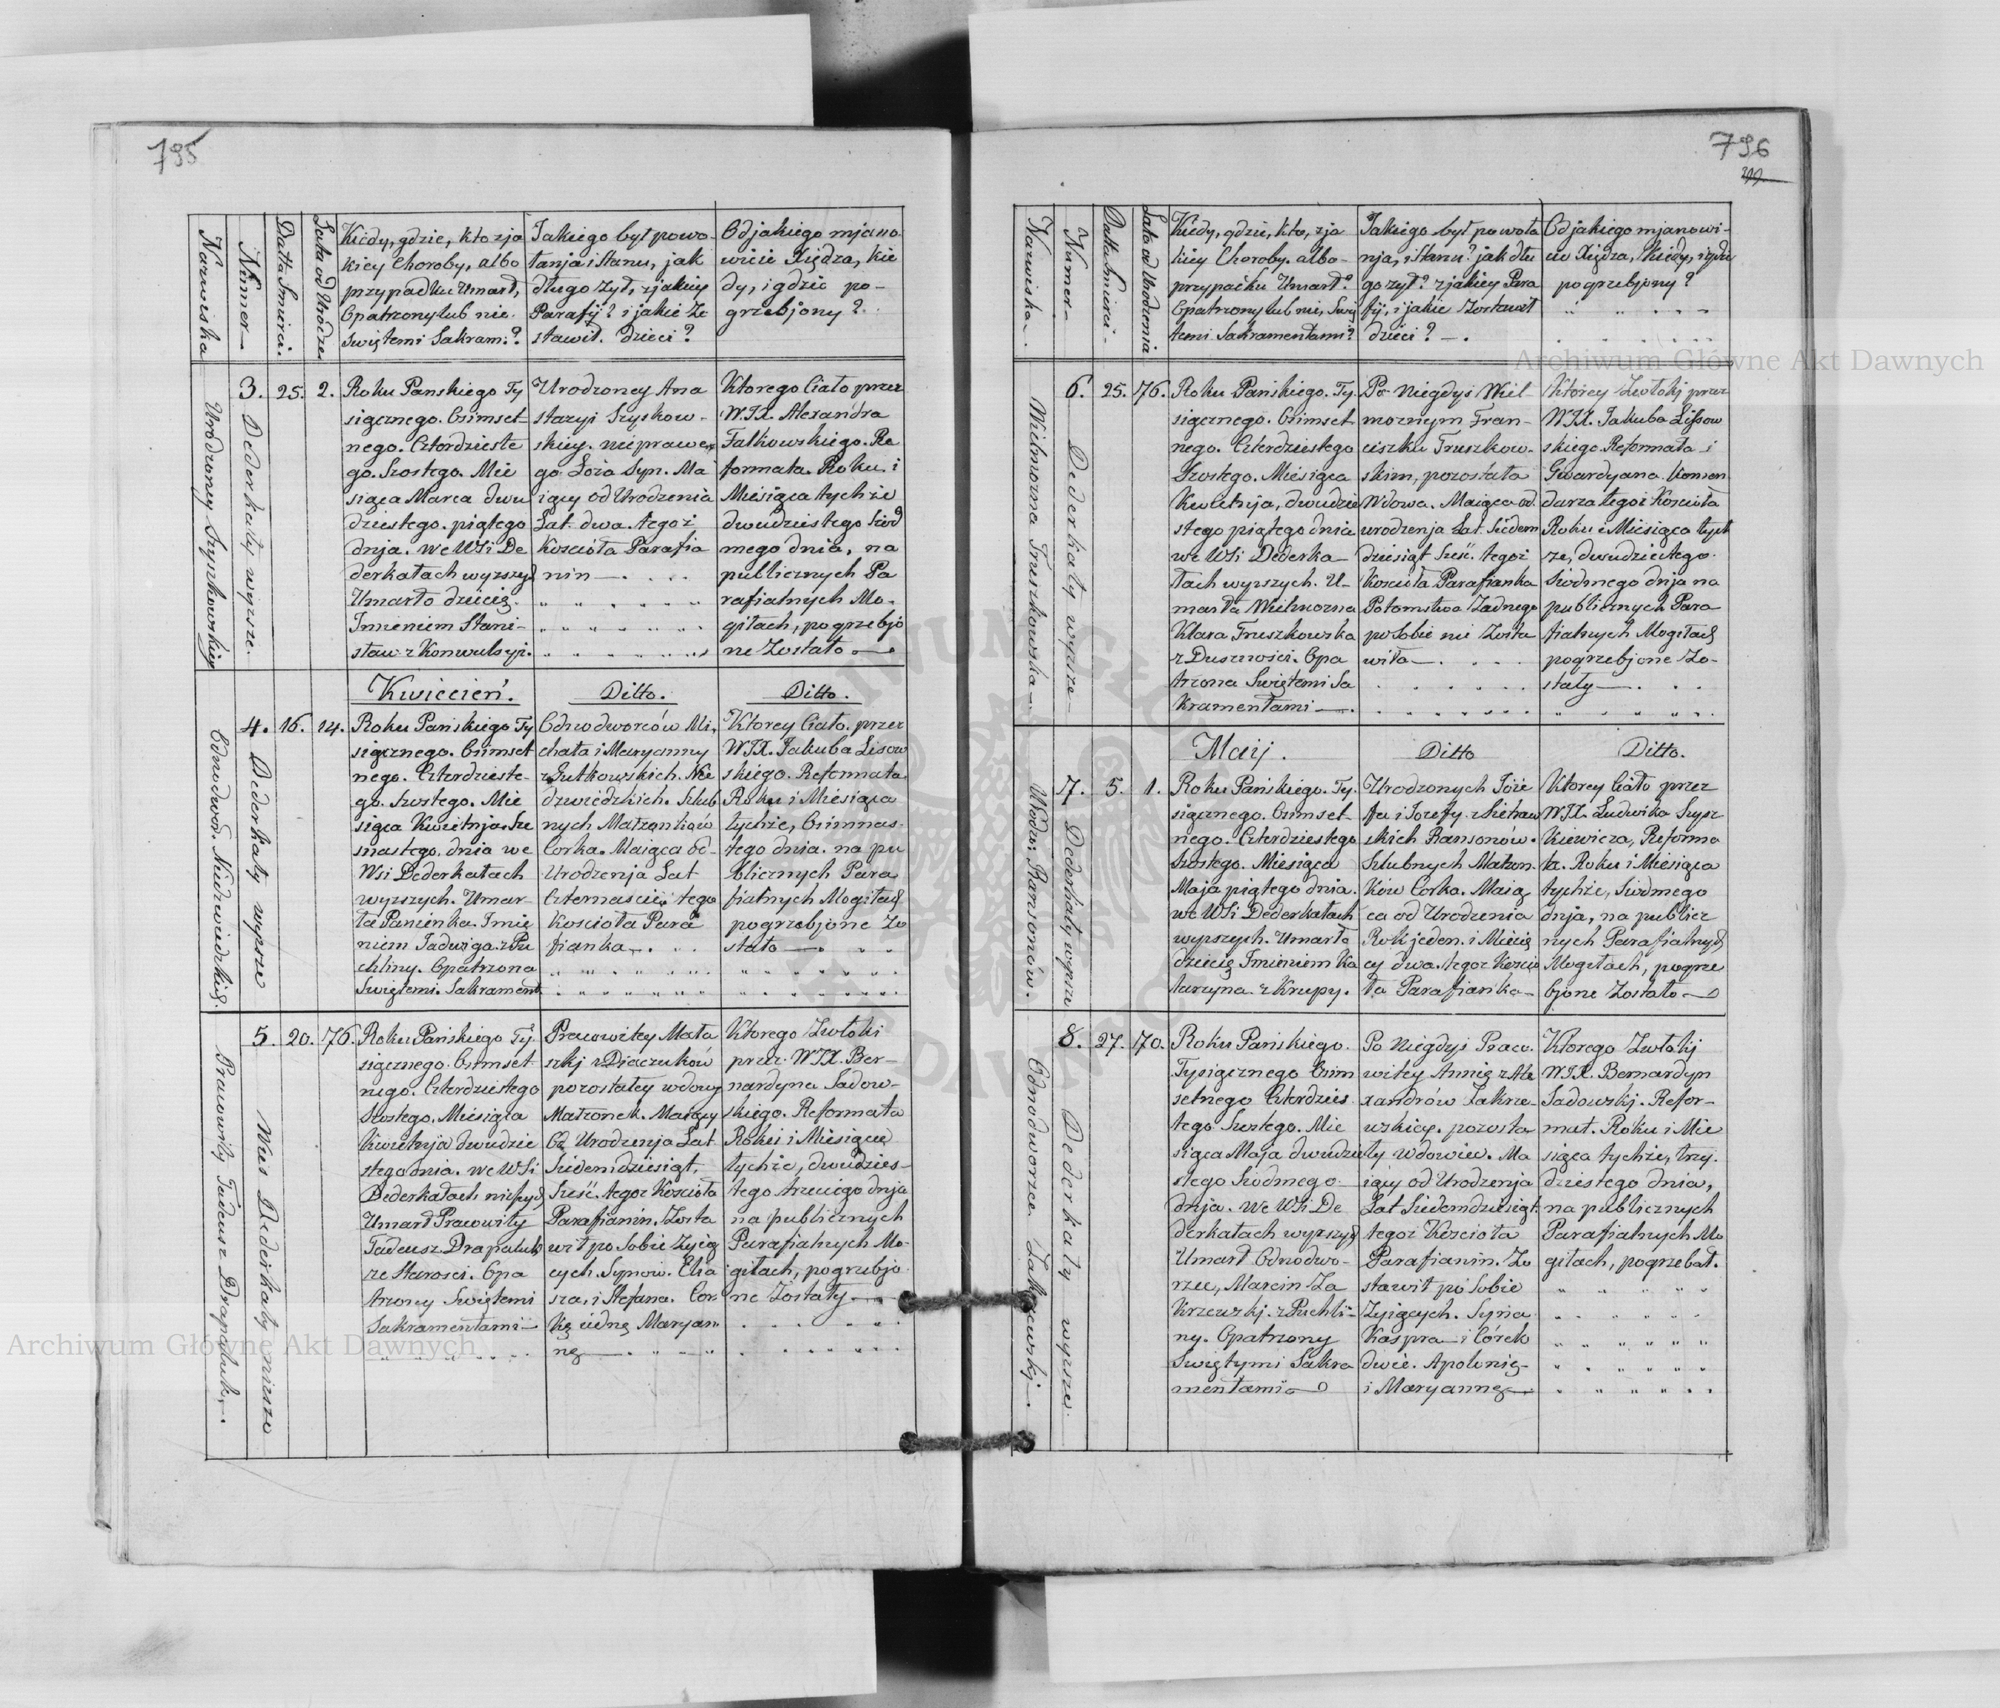 795
Nazwiska
Numer
Datta Smierci.
Lata od Urodze.
Kiedy, gdzie, kto zja
kiey Choroby, albo
przypadku Umarł,
Opatrzony lub nie
Swiętemi Sakram:?
Jakiego był powo-
łanja i Stanu, jak
długo żył, zjakiey
Parafij? i jakie Zo
stawił. Dzieci?
Od jakiego mjano-
wicie Xiędza, kie
dy, i gdzie po-
grzebjony?
Urodzoney Szyszkowskiey
3. Dederkały wyższe.
25.
2.
Roku Panskiego Ty
siącznego. Osimset-
nego. Czterdzieste
go. Szostego. Mie
siąca Marca dwu
dziestego. piątego
dnja. We WSi De
derkałach wyższych
Umarło dziecię.
Imieniem Stani-
sław z Konwulsyi.
Urodzoney Ana
stazyi Szyskow-
skiey. nieprawe
go Łoża Syn. Ma
iący od Urodzenia
Lat. dwa. tegoż
Kościoła Parafia
nin
Ktorego Ciało przez
W.JX. Alexandra
Falkowskiego. Re
formata. Roku. i
Miesiąca tychże
dwudziestego Siód
mego dnia, na
publicznych Pa
rafialnych Mo-
giłach, pogrzebjo
ne Zostało
Kwiecień.
Ditto.
Ditto.
Odnodwor. Niedzwiedzkich.
4. Dederkały wyższe
16.
14.
Roku Panskiego Ty
siącznego. Osimset
nego. Czterdzieste-
go. Szostego. Mie
siąca Kwietnja. Sze
snastego. dnia we
WSi Dederkałach
wyższych. Umar-
ła Panienka. Imie
niem Jadwiga. z Pu
chliny. Opatrzona
Swiętemi. Sakrament.
Odnodworców Mi-
chała i Maryanny
z Gutkowskich. Nie
dzwiedzkich. Szlub
nych Matzonków
Corka. Maiąca od-
Urodzenja Lat
Czternaście. tego
Kościoła Para
fianka
Ktorey Ciało. przez
WJX. Jakuba Lisow
skiego. Reformata
Roku i Miesiąca
tychże, Osimnas-
tego dnia. na pu
blicznych Para
fialnych Mogiłach
pogrzebjone Zo
stało
Pracowity Tadeusz Drapaluk.
5. Wieś Dederkały niższe
20.
76.
Roku Pańskiego Ty.
siącznego. Osimset-
nego. Czterdziestego
Szostego. Miesiąca
Kwietnja dwudzie
stego dnia. we WSi
Dederkałach niższych
Umarł Pracowity
Tadeusz Drapaluk
ze Starosci. Opa
trzony Swiętemi
Sakramentami
Pracowitey Mała
szki z Diaczuków
pozostałey wdowy
Matzonek. Maiący
Od Urodzenja Lat
Siedemdziesiąt,
Sześć. tegoż Kościoła
Parafianin. Zosta
wił po. Sobie Żyią
cych. Synow. Elia
sza, i Stefana. Cor
kę iednę Maryan
nę
Ktorego Zwłoki
przez. WJX. Ber-
nardyna Sadow-
skiego. Reformata
Roku i Miesiąca
tychże, dwudzies-
tego trzeciego dnja
na publicznych
Parafialnych Mo-
giłach, pogrzebjo
ne Zostały
796
Nazwiska
Numer
Datta Smierci
Lata od Urodzenia
Kiedy, gdzie, kto, zja
kiey Choroby. albo-
przypadku Umarł?
Opatrzony lub nie, Swię
temi Sakramentami?
Jakiego był powoła
nja, i Stanu? jak dłu
go żył? zjakiey Para
fij, i jakie Zostawił
dzieci?
Od jakiego mjanowi-
cie Xiędza, Kiedy, i gdzie
pogrzebjony?
Wielmożna Truszkowska
6. Dederkały wyższe
25.
76.
Roku Panskiego. Ty.
siącznego. Osimset-
nego. Czterdziestego
Szostego. Miesiąca
Kwietnja, dwudzie
stego piątego dnia
we WSi Dederka-
łach wyższych. U-
marła Wielmożna
Klara Truszkowska
z Duszności. Opa
trzona Swiętemi Sa
kramentami
Po Niegdyś Wiel-
możnym Fran-
ciszku Truszkow-
skim, pozostała
Wdowa. Maiąca od
urodzenja Lat Siedem
dziesiąt Sześć. tegoż
Kościoła Parafianka
Potomstwa Żadnego
po Sobie nie Zosta
wiła
Ktorey Zwłoki przez
WJX. Jakuba Lisow
skiego. Reformata i
Gwardyana. Komen
darza tegoż Kościoła
Roku i Miesiąca tych
że, dwudziestego
Siodmego dnja na
publicznych Para
fialnych Mogiłach
pogrzebjone Zo-
stały
Maij.
Ditto
Ditto.
Urodz: Ransonów.
7. Dederkały wyższe
5.
1.
Roku Pańskiego. Ty.
siącznego. Osimset-
nego. Czterdziestego
Szostego. Miesiąca
Maja piątego dnia.
we WSi Dederkałach
wyższych. Umarło
dziecię Imieniem Ka
tarzyna z Krupy.
Urodzonych Józe
fa i Jozefy z Nietraw
skich Ransonów.
Szlubnych Matzon
ków Corka. Maią
ca od Urodzenia
Rok jeden. i Miesię
cy dwa. tegoż Kościo
ła Parafianka
Ktorey Ciało przez
WJX. Ludwika Susz
kiewicza, Reforma
ta. Roku i Miesiąca
tychże, Siodmego
dnja, na publicz
nych Parafialnych
Mogiłach, pogrze
bjone Zostało
Odnodworzec Zakrzewskj.
8. Dederkały wyższe.
27.
70.
Roku Pańskiego.
Tysiącznego Osim
setnego Czterdzies
tego Szostego. Mie
siąca Maja dwudzie
stego Siodmego
dnja. We WSi De
derkałach wyższych
Umarł Odnodwo-
rzec, Marcin Za
krzewskj. z Puchli-
ny. Opatrzony
Swiętymi Sakra
mentami
Po Niegdyś Praco.
witey Annie z Ale
xandrów Zakrze
wskiey. pozosta
ły Wdowiec. Ma
iący od Urodzenja
Lat Siedemdziesiąt
tegoż Kościoła
Parafianin. Zo
stawił po Sobie
Żyiących. Syna
Kaspra i Córek
dwie. Apolonię
i Maryannę
Ktorego Zwłoki
WJX. Bernardyn
Sadowskj. Refor-
mat. Roku i Mie
siąca tychże, trzy.
dziestego dnia,
na publicznych
Parafialnych Mo
giłach, pogrzebał.
Archiwum Główne Akt Dawnych
Archiwum Główne Akt Dawnych